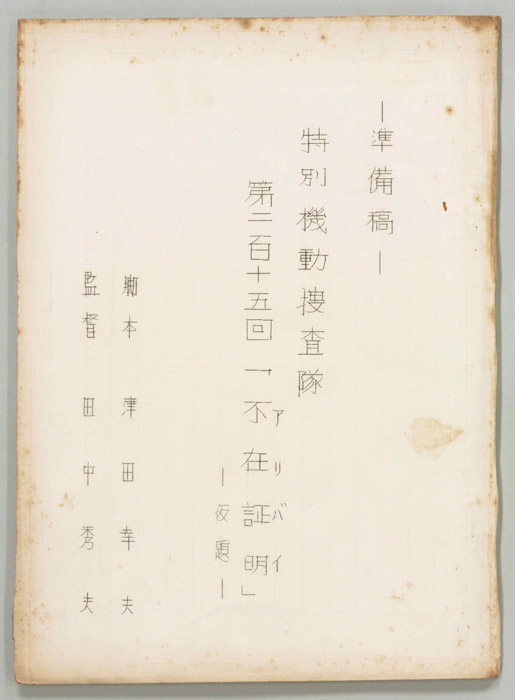 ―準備稿―
特別機動捜査隊
第二百十五回「不在証明」
アリバイ
―仮題―
脚本 津田幸夫
監督 田中秀夫